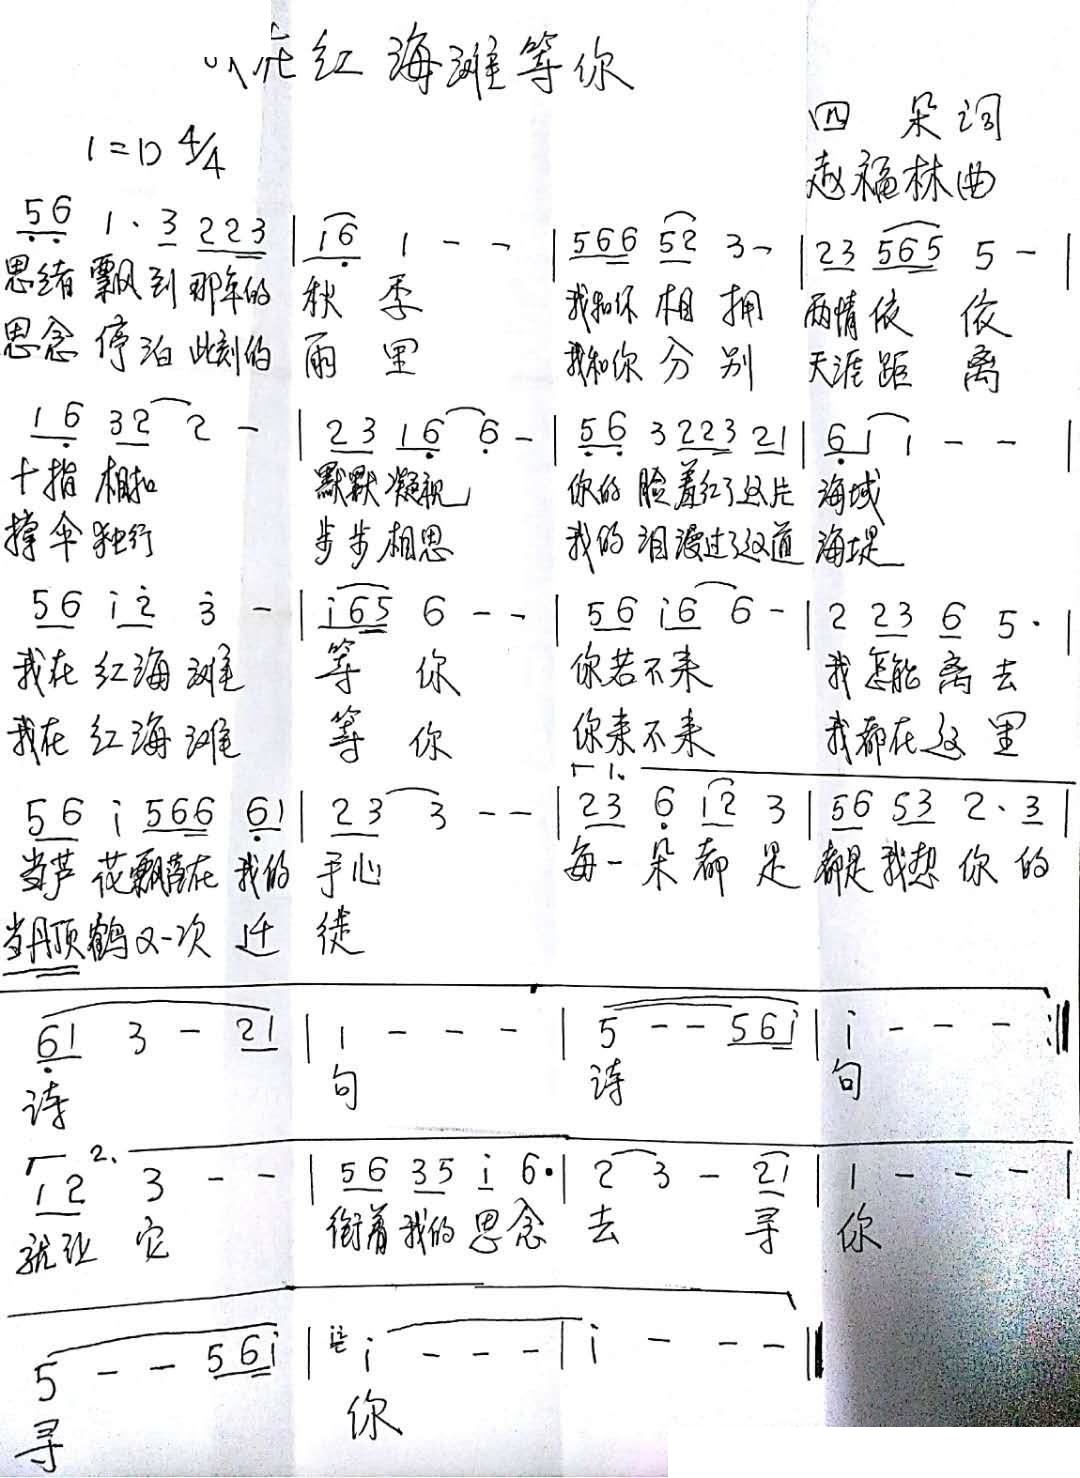 在红海滩等你
四 朵词
1=D 4/4
赵福林曲
56 1·3 223 | 16 1 - - | 566 52 3- | 23 565 5 - |
思绪 飘到 那年的 秋 季 我和你 相 拥 两情依 依
思念 停泊 此刻的 雨 里 我和你 分 别 天涯距 离
16 32 2 - | 23 16 6 - | 56 3 223 21 | 61 1 - - |
十指 相扣 默默凝视 你的 脸羞红了这片 海域
撑伞独行 步步相思 我的 泪漫过了这道 海堤
56 i2 3 - | i65 6 - - | 56 i6 6 - | 2 23 6 5· |
我在 红海 滩 等 你 你若不来 我怎能离去
我在 红海 滩 等 你 你来不来 我都在这里
1.
56 i 566 61 | 23 3 - - | 23 6 i2 3 | 56 53 2·3 |
当芦 花飘落在 我的 手心 每一朵都是 都是我想你的
当丹顶鹤又一次 迁 徙
61 3 - 21 | 1 - - - | 5 - - 56i | i - - - :||
诗 句 诗 句
2.
12 3 - - | 56 35 i 6· | 2 3 - 21 | 1 - - - |
就让 它 衔着我的思念 去 寻 你
5 - - 56i | i - - - | i - - - ||
寻 你